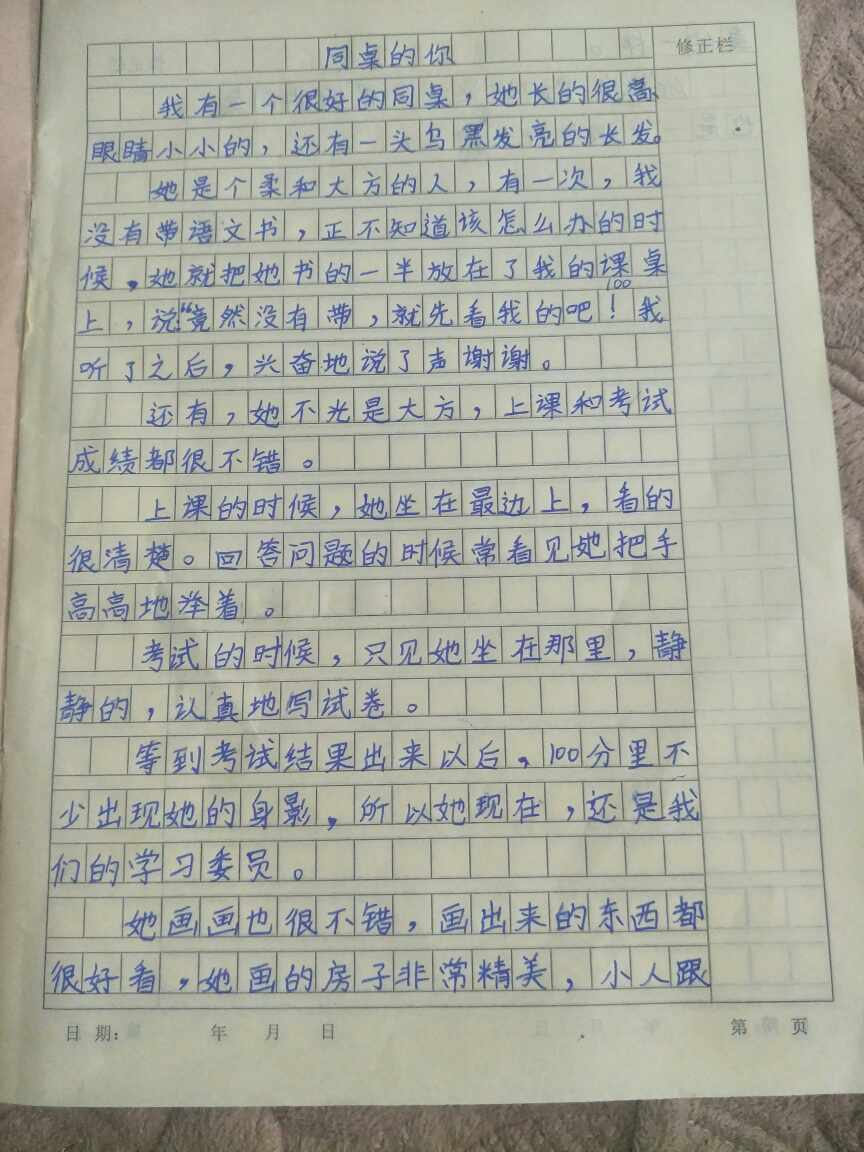 同桌的你
修正栏
我有一个很好的同桌，她长的很高、
眼睛小小的，还有一头乌黑发亮的长发。
她是个柔和大方的人，有一次，我
没有带语文书，正不知道该怎么办的时
候，她就把她书的一半放在了我的课桌
100
上，说：“竟然没有带，就先看我的吧！我
听了之后，兴奋地说了声谢谢。
还有，她不光是大方，上课和考试
成绩都很不错。
上课的时候，她坐在最边上，看的
很清楚。回答问题的时候常看见她把手
高高地举着。
考试的时候，只见她坐在那里，静
静的，认真地写试卷。
等到考试结果出来以后，100分里不
少出现她的身影，所以她现在，还是我
们的学习委员。
她画画也很不错，画出来的东西都
很好看，她画的房子非常精美，小人跟
日期： 年 月 日 第 页